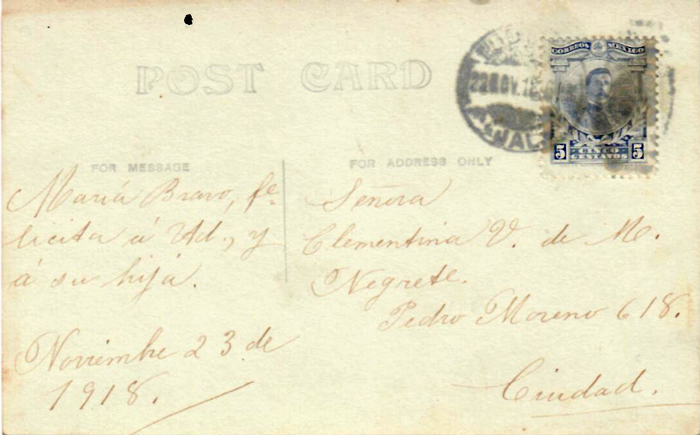 POST CARD
CORREOS MEXICO
5 CINCO CENTAVOS 5
FOR MESSAGE
María Bravo, fe-
licita á Ud., y
á su hija.
Noviembre 23 de
1918.
FOR ADDRESS ONLY
Señora
Clementina V. de M.
Negrete.
Pedro Moreno 618.
Ciudad.